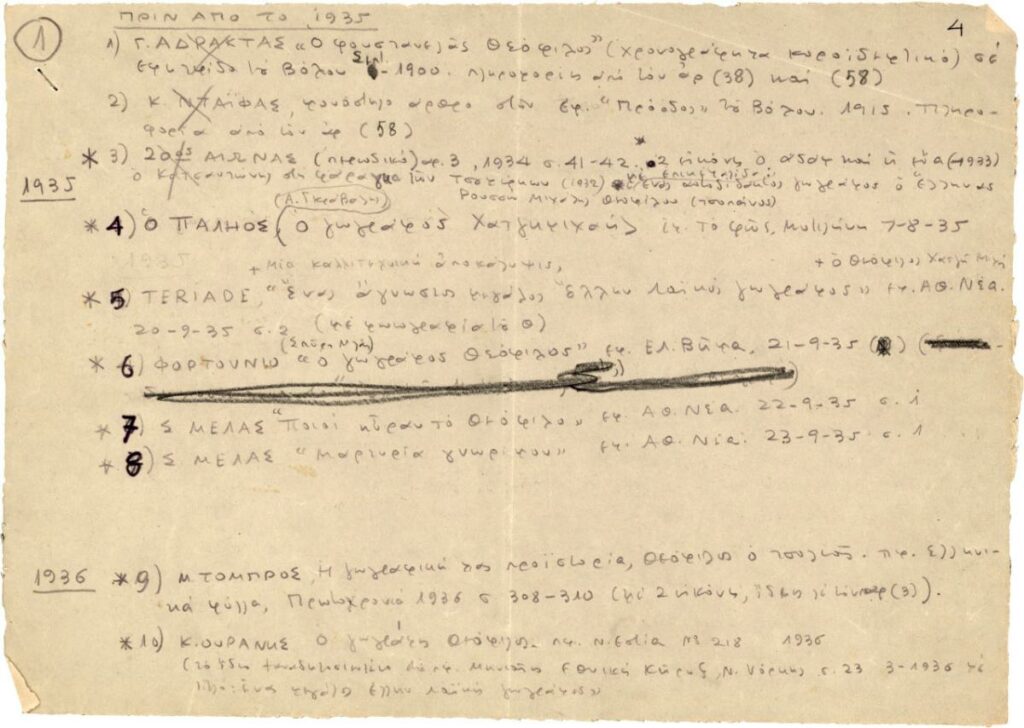 1
ΠΡΙΝ ΑΠΟ ΤΟ 1935
4
1) Γ. ΑΔΡΑΚΤΑΣ „Ο φουστανελάς Θεόφιλος" (χρονογράφημα κοροϊδευτικό) σέ
εφημερίδα τοῦ Βόλου -1900. πληροφορίες από τόν αρ (38) και (58)
2) Κ. ΝΤΑΪΦΑΣ, άρθρο στήν εφ. "Πρόοδος" τοῦ Βόλου. 1915. Πληρο-
φορία από τόν αρ (58)
* 3) 20ος ΑΙΩΝΑΣ (περιοδικό) αρ. 3, 1934 σ. 41-42. 2 εικόνες ο αδάμ και η εύα (1933)
1935
ο Κατσαντώνης στη (1932) ένας αυτοδίδακτος ζωγράφος ο Έλληνας
Ρουσσώ Μιχαήλ Θεόφιλου (τσολιάνος)
(Α. Γκράβαλη)
* 4) Ο ΠΑΛΗΟΣ, (ο ζωγράφος Χατζημιχαήλ) εφ. Το φῶς, Μυτιλήνη 7-8-35
1935
+ Μία καλλιτεχνική αποκάλυψις,
+ ο Θεόφιλος Χατζή Μιχ
* 5) TERIADE, "Ένας άγνωστος μεγάλος Έλλην λαϊκός ζωγράφος" εφ. ΑΘ. ΝΕΑ.
20-9-35 σ. 2 (με φωτογραφία τοῦ Θ)
(Σπύρο Μελά)
* 6) ΦΟΡΤΟΥΝΙΟ "ο ζωγράφος Θεόφιλος" εφ. ΕΛ. Βῆμα, 21-9-35
* 7) Σ ΜΕΛΑΣ "Ποιοί ηὕραν τό Θεόφιλο" εφ. ΑΘ. ΝΕΑ. 22-9-35 σ. 1
* 8) Σ ΜΕΛΑΣ "Μαρτυρία γνωρίμου" εφ. ΑΘ. Νέα. 23-9-35 σ. 1
1936
* 9) Μ ΤΟΜΠΡΟΣ, Η ζωγραφική προϊστορία, Θεόφιλος ο τσολιᾶς. περ. Ελληνι-
κά φύλλα, Πρωτοχρονιά 1936 σ 308-310 (με 2 εικόνες, ίδιες με τόν αρ (3)).
* 10) Κ. ΟΥΡΑΝΗΣ Ο ζωγράφος Θεόφιλος. περ. Ν. Εστία № 218 1936
(Το ίδιο Εθνικός Κήρυξ, Ν. Υόρκης σ. 23 3-1936 με
τίτλο: ένας μεγάλος έλλην λαϊκός ζωγράφος"